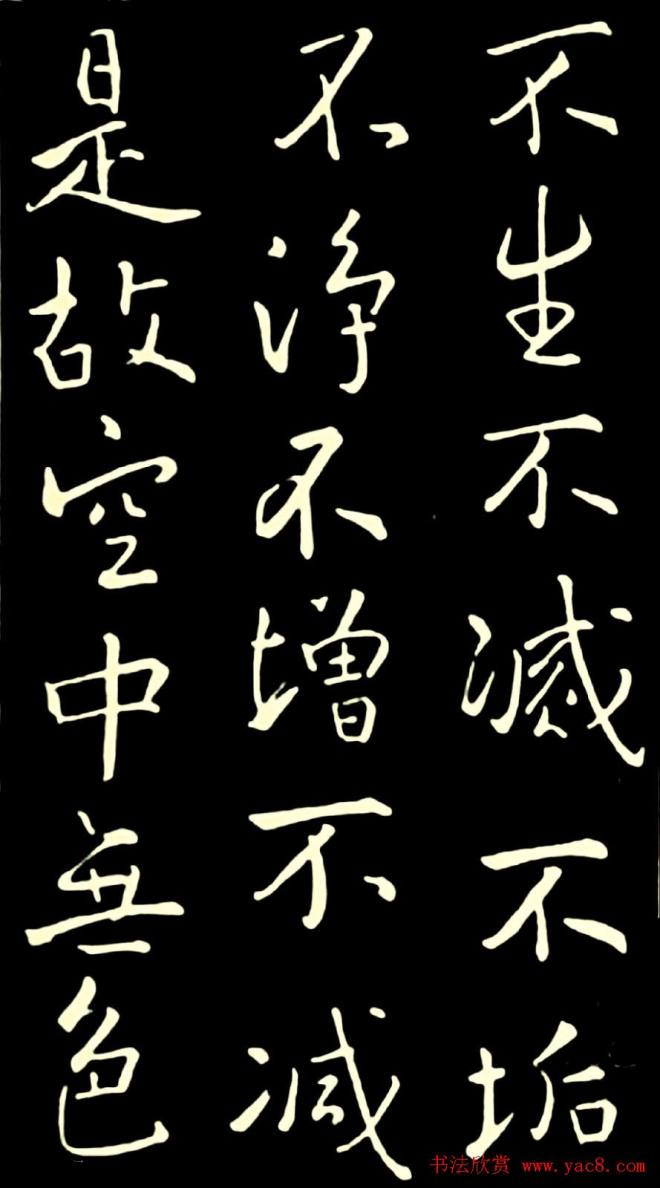 不生不滅不垢
不淨不增不減
是故空中無色
书法欣赏 www.yac8.com